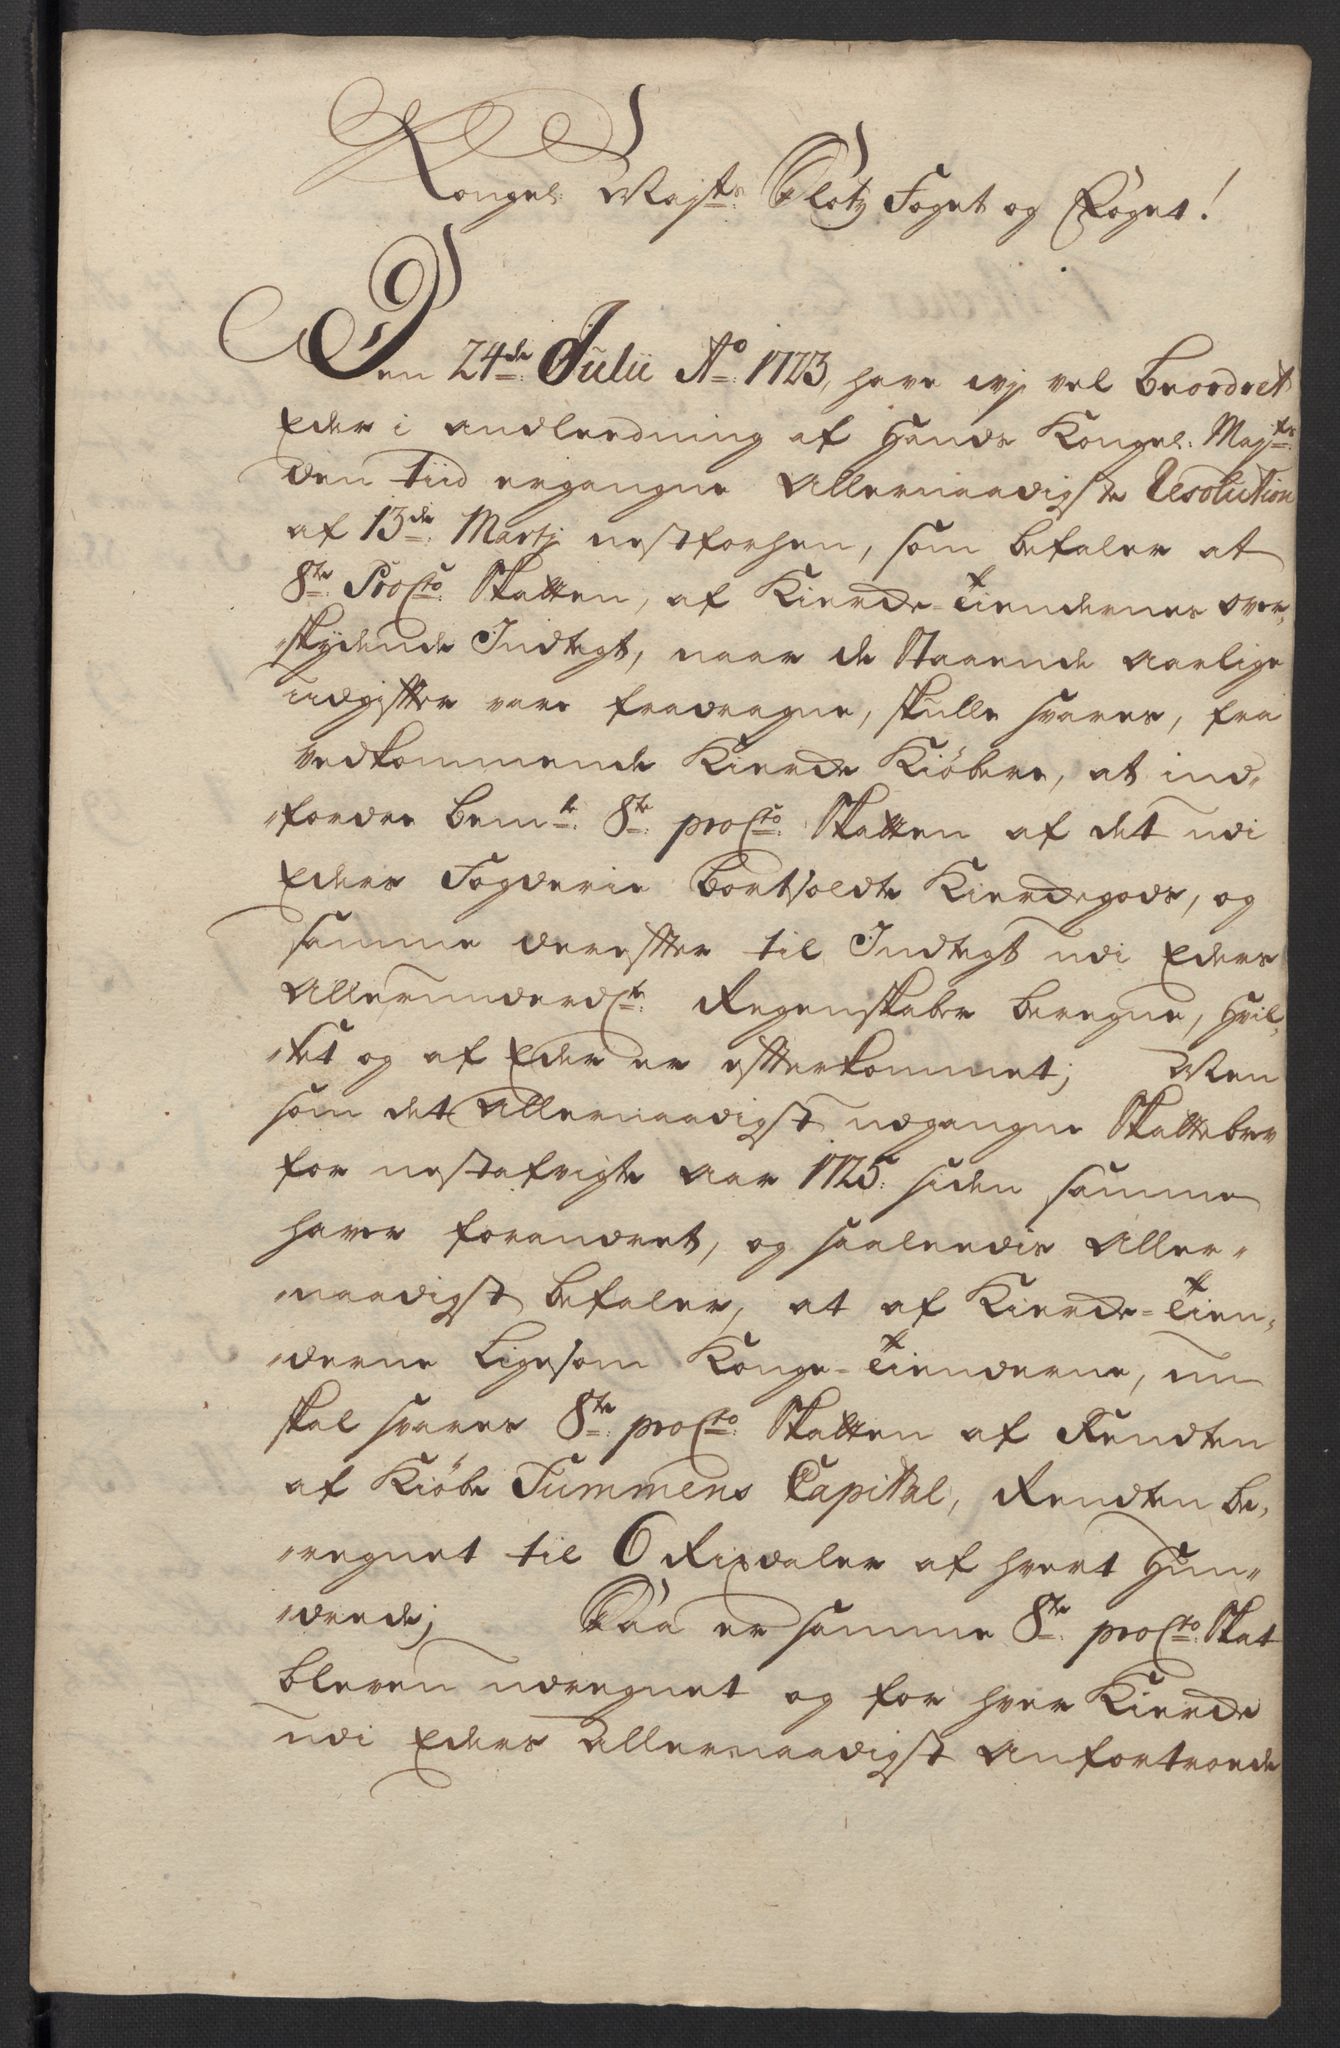 Kongel: Maysts: Slotz Foget og Foget!
Den 24de Julii Ao 1723, have wj vel beordret
Eder i andleedning af Hands Kongel: Maysts:
den tiid ergangne Allernaadigste Resolution
af 13de Martj nestforhen, som befaler at
8te ProCto Skatten, af Kierke-Tiendernes over-
skydende Indtegt, naar de Staaende Aarlige
udgiffter vare fradragne, skulle svares, fra
vedkommende Kierke Kiöbere, at ind-
fordre bemte 8te proCto Skatten af det udi
Eders Fogderie bortsoldte Kierkegods, og
samme dereffter til Indtegt udi Eders
Allerunderdte Regenskaber beregne, Hvil-
ket og af Eder er effterkommet; Men
som det Allernaadigst udgangne Skattebrev
for nestafvigte Aar 1725 siden samme
haver forandret, og saaleedis Aller-
naadigst befaler, at af Kierke-Tien-
derne Ligesom Konge-Tienderne, nu
skal svares 8te proCto Skatten af Rendten
af Kiöbe Summens Capital, Rendten be-
regnet til 6 Rixdaler af hvert Hun-
drede; Saa er samme 8te proCto Skat
bleven udregnet og for hver Kierke
udi Eders Allernaadigst Anfortroede